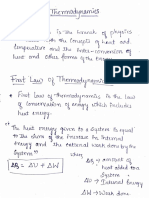 Thermodynamics
is the branch of physics
with the concepts of heat and
temperature and the inter-conversion of
heat and other forms of the energy.
First Law of Thermodynamics
* First Law of thermodynamics is the law
of conservation of energy which includes
heat energy.
* "The heat energy given to a system is equal
to the sum of the increase in internal
energy and the external work done by the
System"
ΔQ = ΔU + ΔW
ΔQ → amount of
heat added to a
system
ΔU → Internal energy
ΔW → Work done